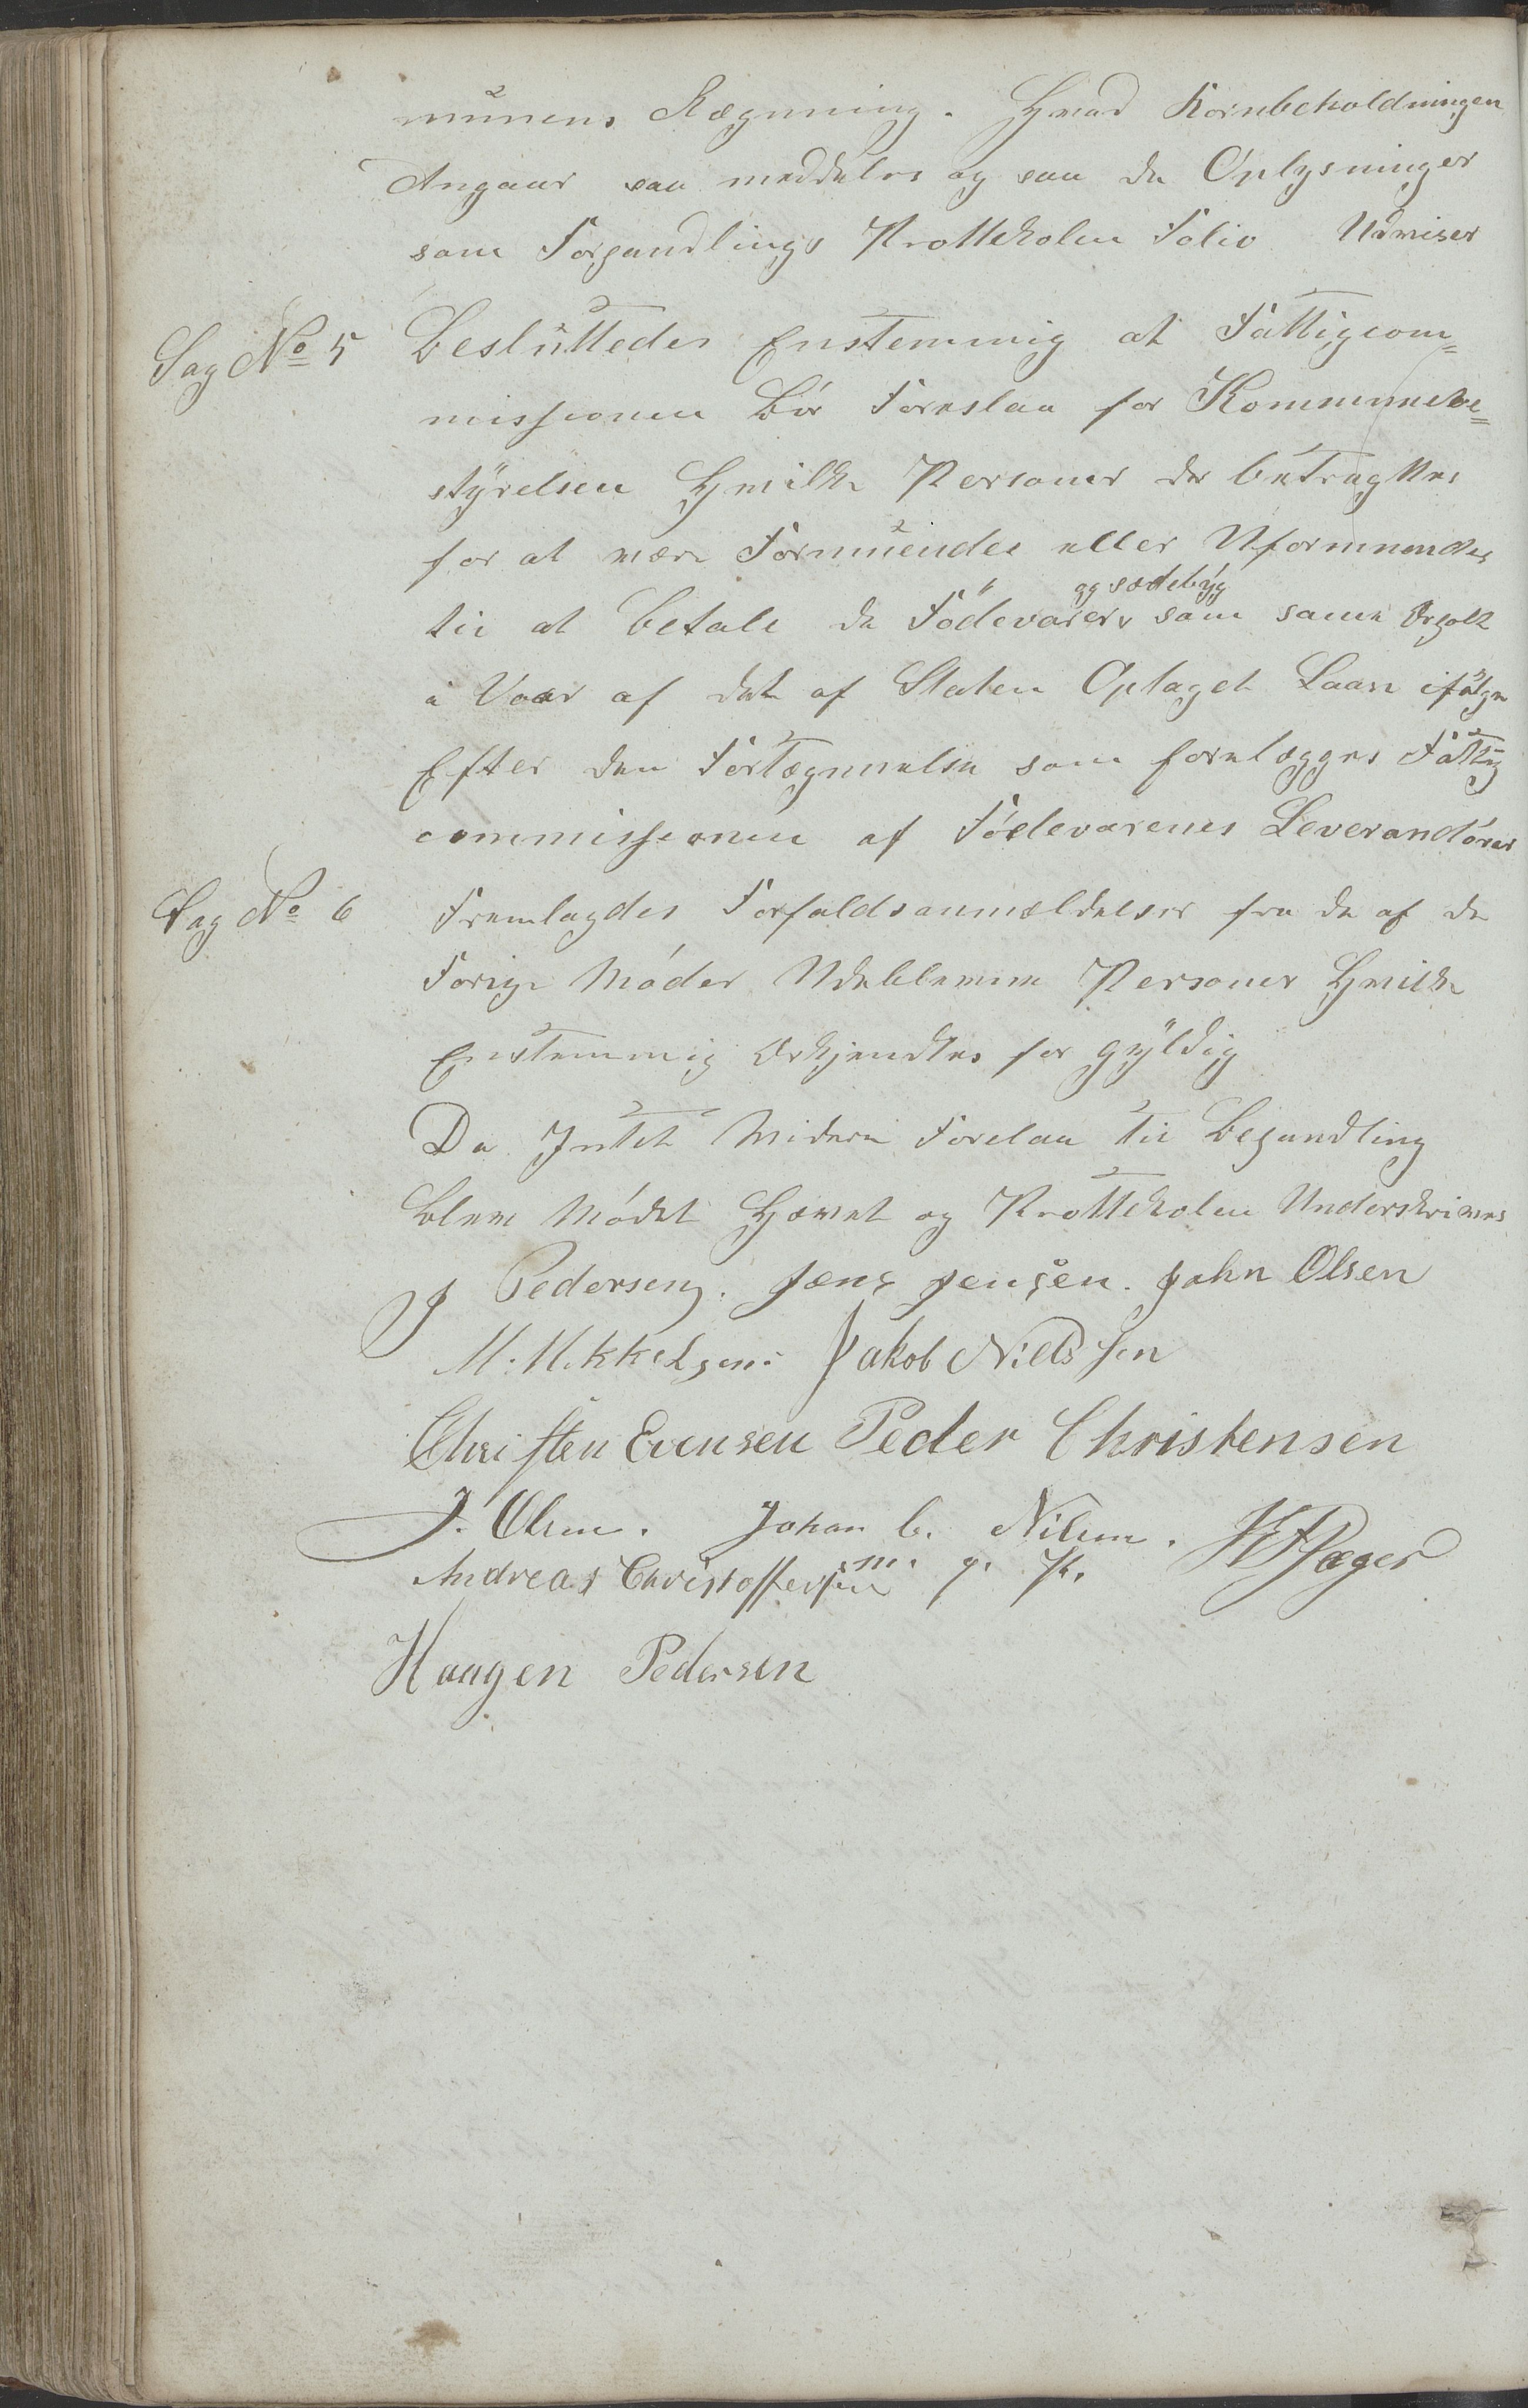 munens Rægnning. Hvad Kornbeholdningen
Angaar saa meddeles og saa de Oplysninger
som Forhandlings Prottekolen Folio Udviser
Sag No 5 Besluttedes Enstemmig at Fattigcom=
missionen bör Foreslaa for Kommunebe=
styrelsen Hvilke Personer der betragttes
for at være Formuendes eller Uformuendes
til at betale de Födevarer som samme Erholt
og sædebyg
i Vaar af det af Staten Optaget Laan ifölge
Efter den Fortægnnelse som forelægges Fattig
commissionen af Födevarenes Leverandörer
Sag No 6 Fremlagdes Forfaldsanmældelser fra de af de
Forige Möder Udeblevne Personer Hvilke
Enstemmig Erkjendtes for gyldig
Da Intet Videre Forelaa til Behandling
blev Mödet Hævet og Prottekolen Underskrives
J Pedersen. Jens Jensen. John Olsen
M. Mikkelsen. Jakob Nielssen
Christen Evensen Peder Christensen
J. Olsen. Johan C. Nilsen.
Andreas Christoffersen m. p. P.
Haagen Pedersen